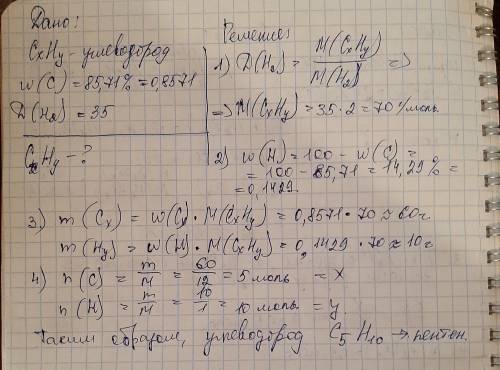 Дано:
CxHy - углеводород
w(C) = 85,71% = 0,8571
D(H2) = 35
CxHy - ?
Решение:
1) D(H2) = M(CxHy) / M(H2) =>
=> M(CxHy) = 35 · 2 = 70 г/моль.
2) w(H) = 100 - w(C) =
= 100 - 85,71 = 14,29% =
= 0,1429.
3) m(Cx) = w(C) · M(CxHy) = 0,8571 · 70 ≈ 60 г.
m(Hy) = w(H) · M(CxHy) = 0,1429 · 70 ≈ 10 г.
4) n(C) = m/M = 60/12 = 5 моль = x
n(H) = m/M = 10/1 = 10 моль = y
Таким образом, углеводород C5H10 → пентен.